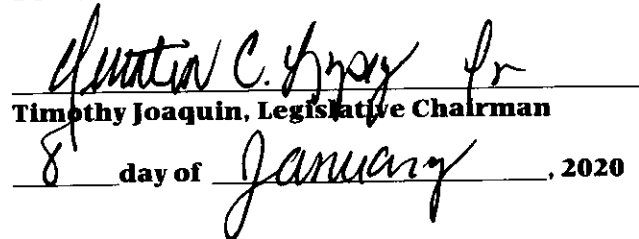 Quintin C. Lopez
Timothy Joaquin, Legislative Chairman
8 day of January, 2020